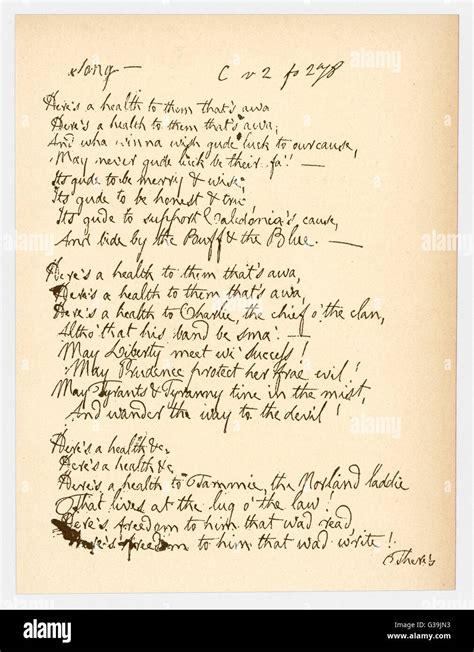 Song —
C v 2 fo 278
Here's a health to them that's awa
Here's a health to them that's awa;
And wha winna wish gude luck to our cause,
May never gude luck be their fa'! —
Its gude to be merry & wise;
Its gude to be honest & true
Its gude to support Caledonia's cause,
And bide by the Buff & the Blue. —
Here's a health to them that's awa,
Here's a health to them that's awa,
Here's a health to Charlie, the chief o' the clan,
Altho' that his band be sma' —
May Liberty meet wi' success!
May Prudence protect her frae evil!
May Tyrants & Tyranny tine in the mist,
And wander the way to the devil!
Here's a health &c
Here's a health &c
Here's a health to Tammie, the Norland laddie
That lives at the lug o' the law!
Here's freedom to him that wad read,
Here's freedom to him that wad write!
There's
alamy
alamy
alamy
Image ID: G39JN3
www.alamy.com